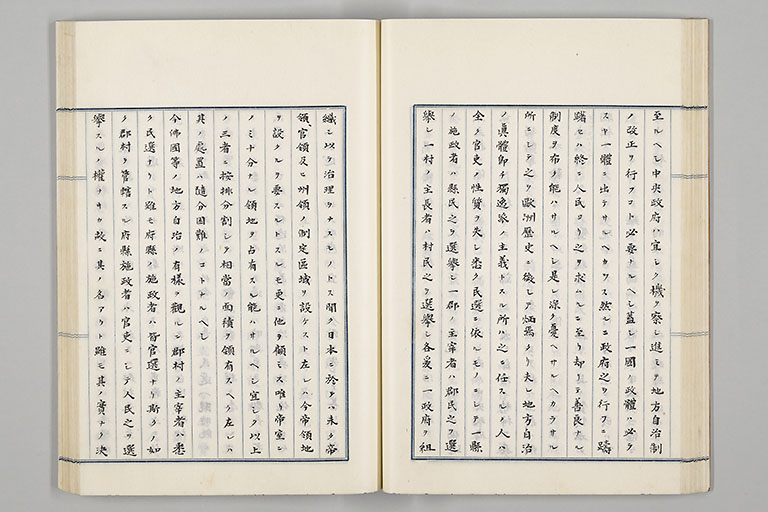 至ルヘシ中央政府ハ宜シク機ヲ察シ進ミテ地方自治制
ノ改正ヲ行フコト必要ナルヘシ蓋シ一國ノ政體ハ必ラ
スヤ一體ニ出テサルヘカラス然ルニ政府之ヲ行フニ躊
躇セハ終ニ人民ヨリ之ヲ求ムルニ至リ却リテ善良ナル
制度ヲ布ク能ハサルヘシ是レ深ク憂ヘサルヘカラサル
所ニシテ之ヲ歐洲歴史ニ徴シテ炳焉タリ夫レ地方自治
ノ眞體即チ獨逸派ノ主義トスル所ハ之ニ任スルノ人ハ
全ク官吏ノ性質ヲ失シ悉ク民選ニ依ルモノニシテ一縣
ノ施政者ハ縣民之ヲ選擧シ一郡ノ主宰者ハ郡民之ヲ選
擧シ一村ノ主長者ハ村民之ヲ選擧シ各爰ニ一政府ヲ組
織シ以テ治理ヲナスモノトス聞ク日本ニ於テハ未タ帝
領官領及ヒ州領ノ制定區域ヲ設ケスト左レハ今帝領地
ヲ設クルヲ要スルトスルモ更ニ他ヲ顧ミス唯リ帝室ニ
ノミ十分ナル領地ヲ占有スル能ハサルヘシ宜シク以上
ノ三者ニ按排分割シテ相當ノ面積ヲ領有スヘク左レハ
其ノ處置ハ隨分困難ノコトナルヘシ
今佛國等ノ地方自治ノ有樣ヲ觀ルニ郡村ノ主宰者ハ悉
ク民選ナリト雖モ府縣ノ施政者ハ皆官選ナリ斯クノ如
ク郡村ヲ管轄スル府縣施政者ハ官吏ニシテ人民之ヲ選
擧スルノ權ナキカ故ニ其ノ名アリト雖モ其ノ實ナク決